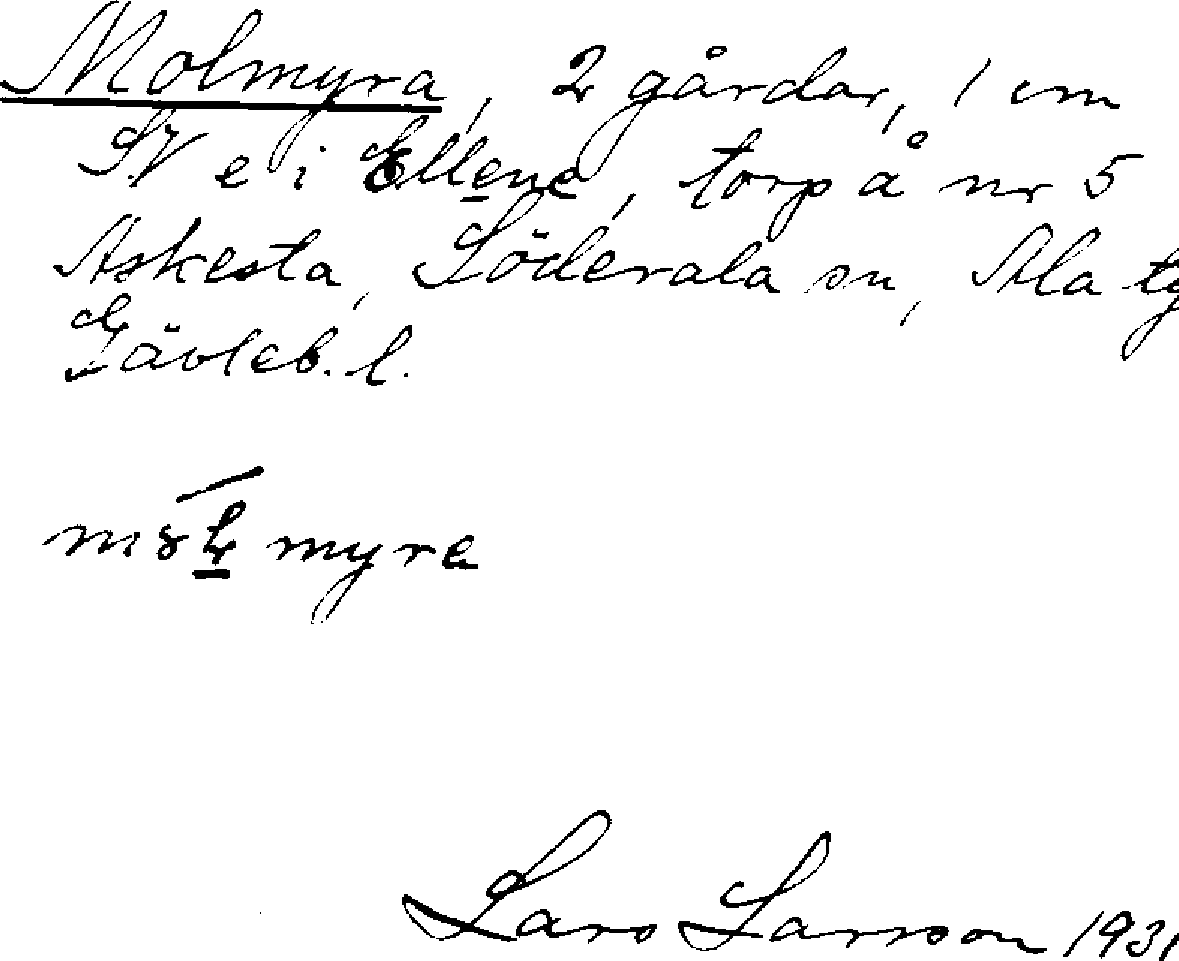 Molmyra, 2 gårdar, 1 cm
SV e i Ellene, torp å nr 5
Askesta, Söderala sn, Ala
Gävleb. l.
Lars Larsson 1931